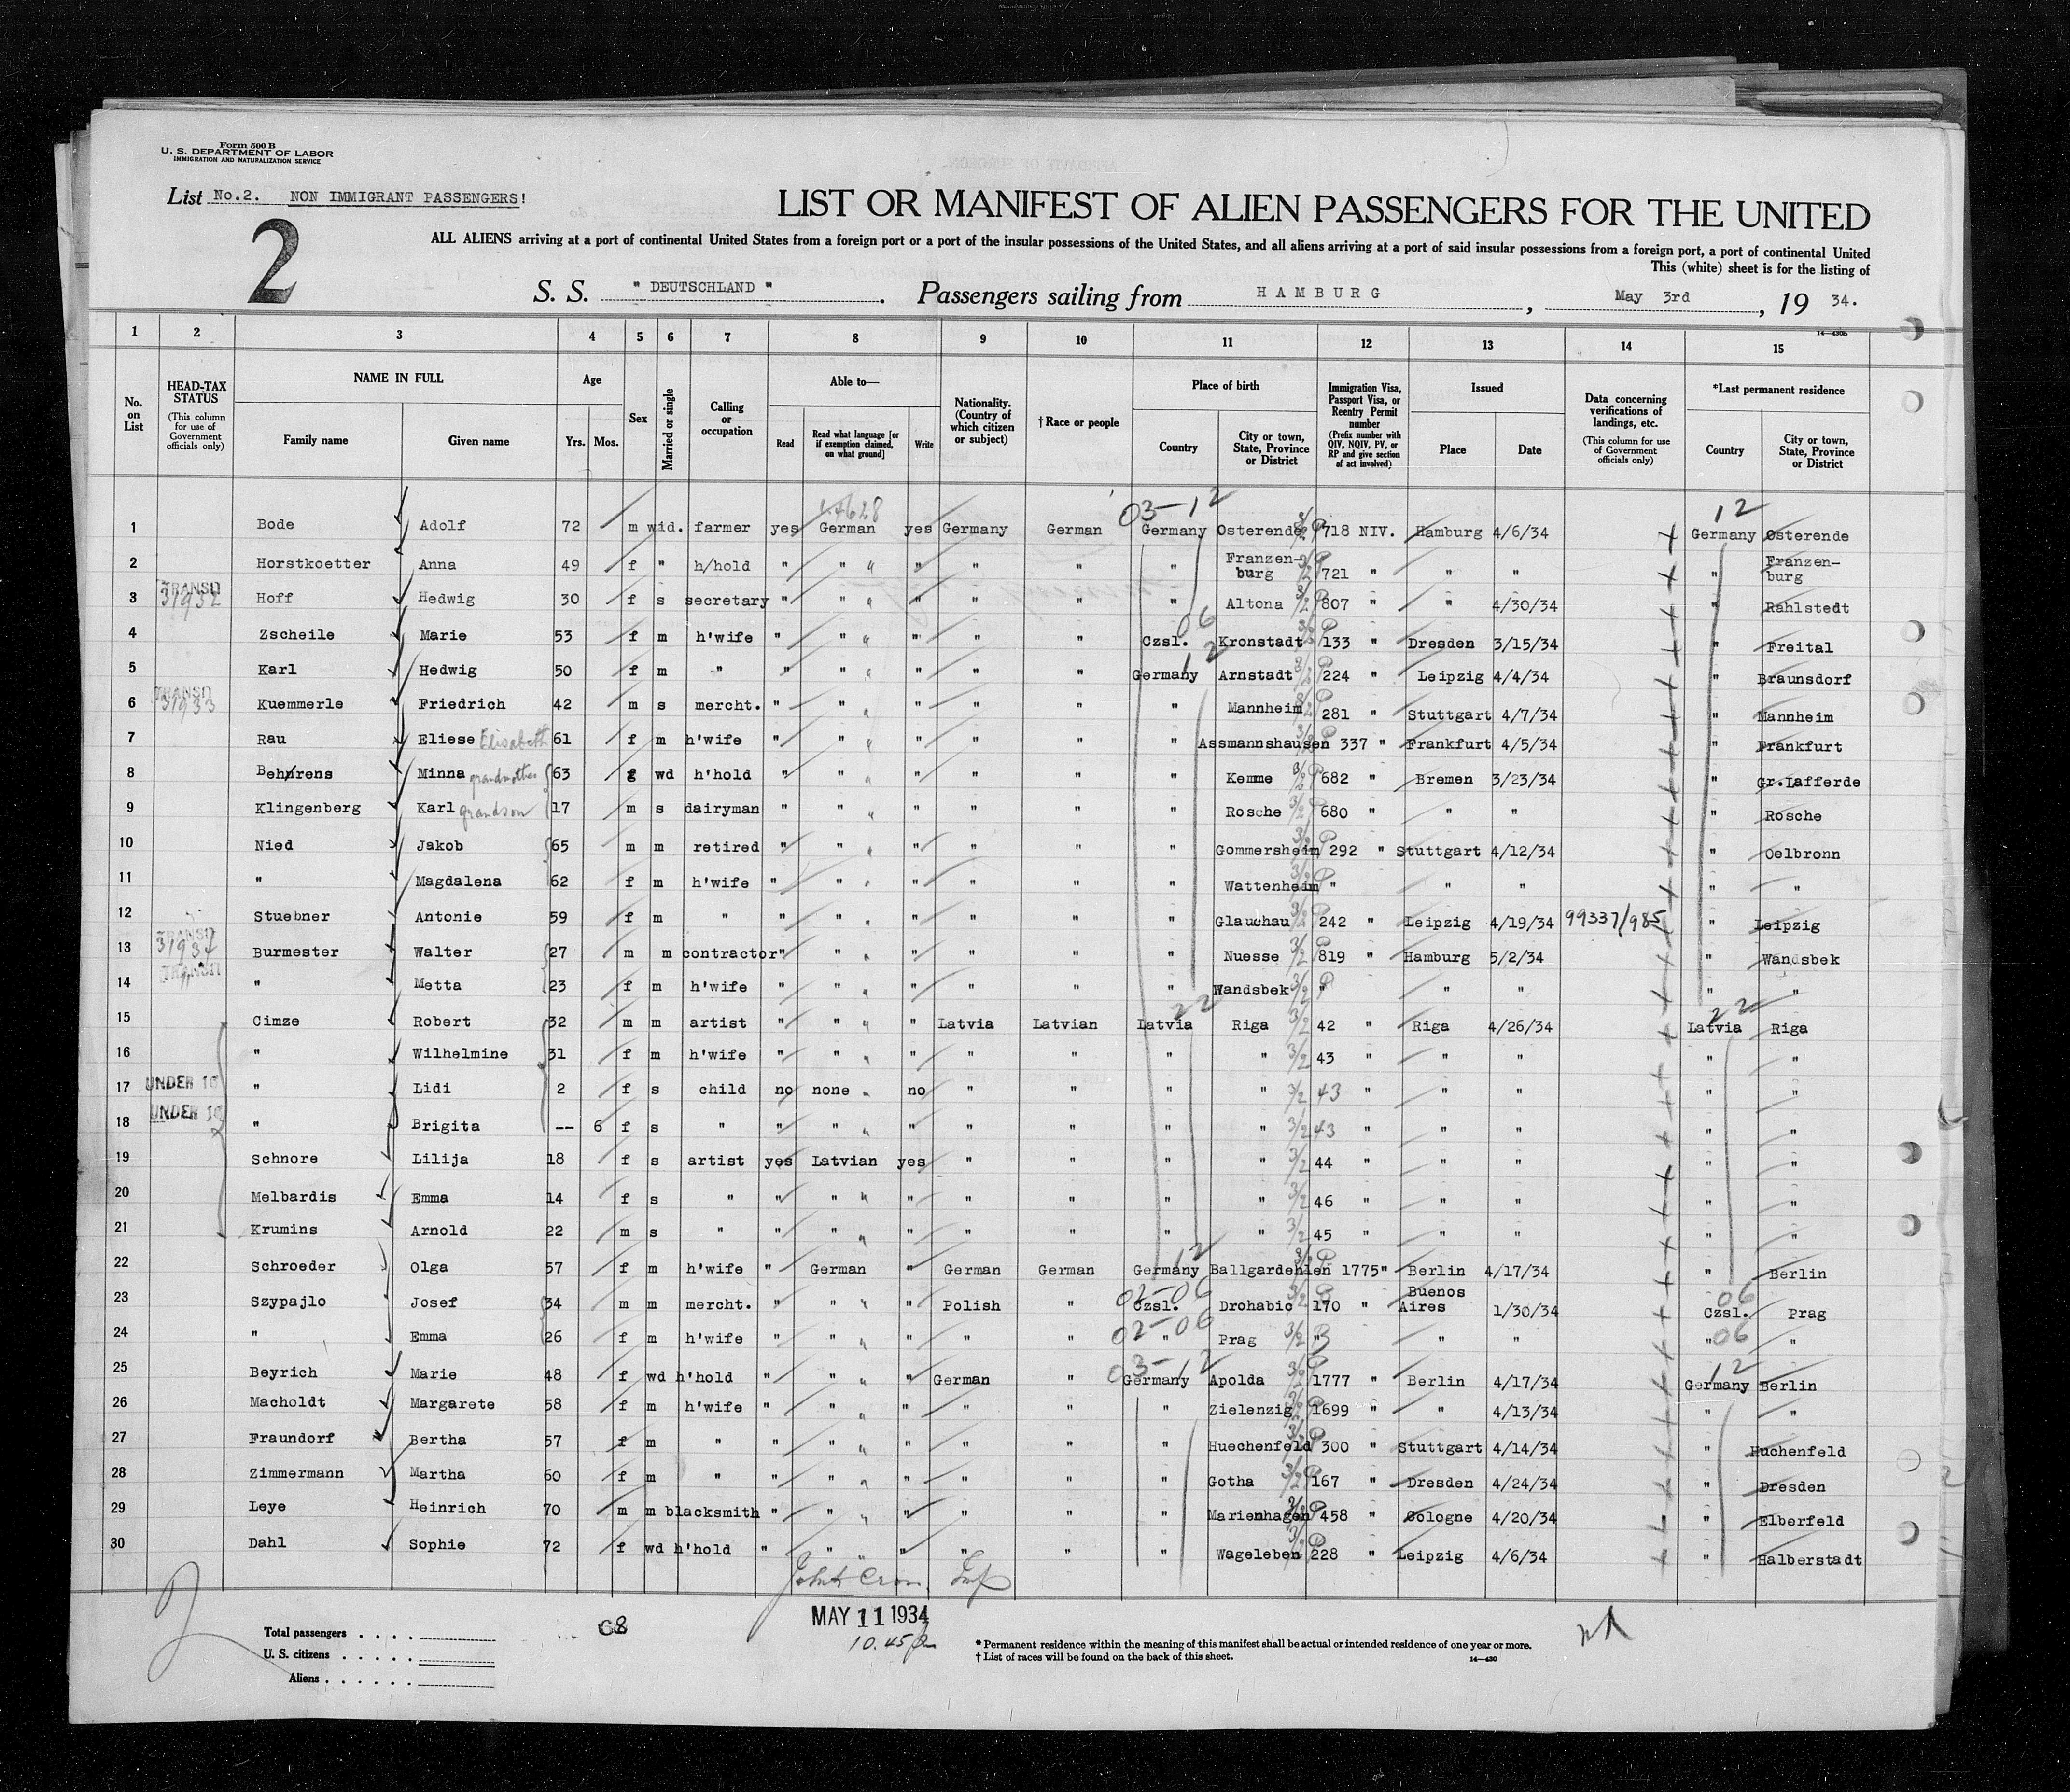 Form 500 B
U. S. DEPARTMENT OF LABOR
IMMIGRATION AND NATURALIZATION SERVICE
List No.2. NON IMMIGRANT PASSENGERS!
LIST OR MANIFEST OF ALIEN PASSENGERS FOR THE UNITED
2
ALL ALIENS arriving at a port of continental United States from a foreign port or a port of the insular possessions of the United States, and all aliens arriving at a port of said insular possessions from a foreign port, a port of continental United
This (white) sheet is for the listing of
S. S. " DEUTSCHLAND " . Passengers sailing from HAMBURG , May 3rd , 19 34.
14—430b
1 2 3 4 5 6 7 8 9 10 11 12 13 14 15
No. on List
HEAD-TAX STATUS (This column for use of Government officials only)
NAME IN FULL
Family name Given name
Age
Yrs. Mos.
Sex
Married or single
Calling or occupation
Able to—
Read Read what language [or if exemption claimed, on what ground] Write
Nationality. (Country of which citizen or subject)
†Race or people
Place of birth
Country City or town, State, Province or District
Immigration Visa, Passport Visa, or Reentry Permit number (Prefix number with QIV, NQIV, PV, or RP and give section of act involved)
Issued
Place Date
Data concerning verifications of landings, etc. (This column for use of Government officials only)
*Last permanent residence
Country City or town, State, Province or District
03-12 12
1 Bode Adolf 72 m wid. farmer yes German yes Germany German Germany Osterende 3/2 P 718 NIV. Hamburg 4/6/34 Germany Osterende
2 Horstkoetter Anna 49 f " h/hold " " " " " " " Franzen-burg 3/2 P 721 " " " " Franzen-burg
3 TRANSIT Hoff Hedwig 30 f s secretary " " " " " " " Altona 3/2 P 807 " " 4/30/34 " Rahlstedt
06
4 Zscheile Marie 53 f m h'wife " " " " " " Czsl. Kronstadt 3/2 P 133 " Dresden 3/15/34 " Freital
12
5 Karl Hedwig 50 f m " " " " " " " Germany Arnstadt 3/2 P 224 " Leipzig 4/4/34 " Braunsdorf
6 TRANSIT 31933 Kuemmerle Friedrich 42 m s mercht. " " " " " " " Mannheim 3/2 P 281 " Stuttgart 4/7/34 " Mannheim
7 Rau Eliese Elisabeth 61 f m h'wife " " " " " " " Assmannshausen 3/2 P 337 " Frankfurt 4/5/34 " Frankfurt
8 Behrens Minna grandmother 63 f wd h'hold " " " " " " " Kemme 3/2 P 682 " Bremen 3/23/34 " Gr.Lafferde
9 Klingenberg Karl grandson 17 m s dairyman " " " " " " " Rosche 3/2 P 680 " " " " Rosche
10 Nied Jakob 65 m m retired " " " " " " " Gommersheim 3/2 P 292 " Stuttgart 4/12/34 " Oelbronn
11 " Magdalena 62 f m h'wife " " " " " " " Wattenheim 3/2 P " " " " "
12 Stuebner Antonie 59 f m " " " " " " " " Glauchau 3/2 P 242 " Leipzig 4/19/34 99337/985 " Leipzig
13 TRANSIT Burmester Walter 27 m m contractor " " " " " " " Nuesse 3/2 P 819 " Hamburg 5/2/34 " Wandsbek
14 TRANSIT " Metta 23 f m h'wife " " " " " " " Wandsbek 3/2 P " " " " "
22 22
15 Cimze Robert 32 m m artist " " " " Latvia Latvian Latvia Riga 3/2 42 " Riga 4/26/34 Latvia Riga
16 " Wilhelmine 31 f m h'wife " " " " " " " " 3/2 43 " " " " "
17 UNDER 16 " Lidi 2 f s child no none " no " " " " 3/2 43 " " " " "
18 UNDER 16 " Brigita -- 6 f s " " " " " " " " " 3/2 43 " " " " "
19 Schnore Lilija 18 f s artist yes Latvian yes " " " " 3/2 44 " " " " "
20 Melbardis Emma 14 f s " " " " " " " " " 3/2 46 " " " " "
21 Krumins Arnold 22 m s " " " " " " " " " 3/2 45 " " " " "
12
22 Schroeder Olga 57 f m h'wife " German " German German Germany Ballgardehlen 3/2 P 1775 " Berlin 4/17/34 " Berlin
02-06 06
23 Szypajlo Josef 34 m m mercht. " " " " Polish " Czsl. Drohabic 3/2 P 170 " Buenos Aires 1/30/34 Czsl. Prag
02-06 06
24 " Emma 26 f m h'wife " " " " " " " Prag 3/2 P " " " " "
03-12 12
25 Beyrich Marie 48 f wd h'hold " " " " German " Germany Apolda 3/2 P 1777 " Berlin 4/17/34 Germany Berlin
26 Macholdt Margarete 58 f m h'wife " " " " " " " Zielenzig 3/2 P 1699 " " 4/13/34 " "
27 Fraundorf Bertha 57 f m " " " " " " " " Huechenfeld 3/2 P 300 " Stuttgart 4/14/34 " Huchenfeld
28 Zimmermann Martha 60 f m " " " " " " " " Gotha 3/2 P 167 " Dresden 4/24/34 " Dresden
29 Leye Heinrich 70 m m blacksmith " " " " " " " Marienhagen 3/2 P 458 " Cologne 4/20/34 " Elberfeld
30 Dahl Sophie 72 f wd h'hold " " " " " " Wageleben 3/2 P 228 " Leipzig 4/6/34 " Halberstadt
Total passengers . . . .
U. S. citizens . . . . .
Aliens . . . . . .
MAY 11 1934
10.45 pm
* Permanent residence within the meaning of this manifest shall be actual or intended residence of one year or more.
† List of races will be found on the back of this sheet.
14—430